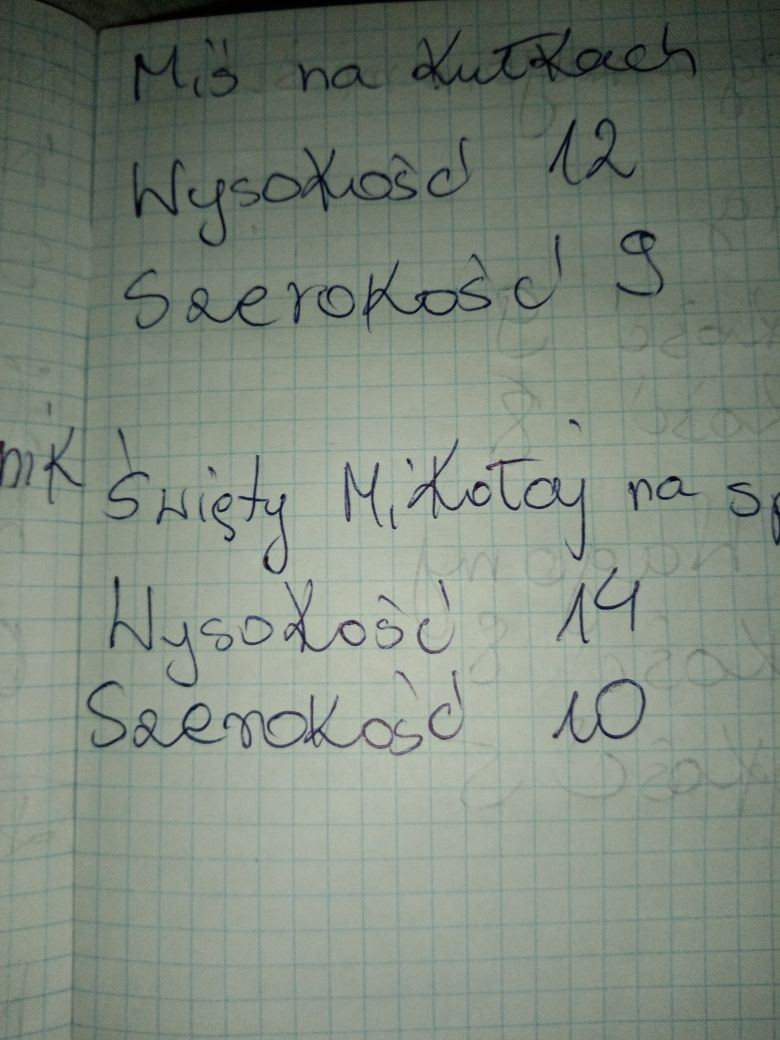 Miś na Kułkach
Wysokość 12
Szerokość 9
nik
Święty Mikołaj na sp
Wysokość 14
Szerokość 10